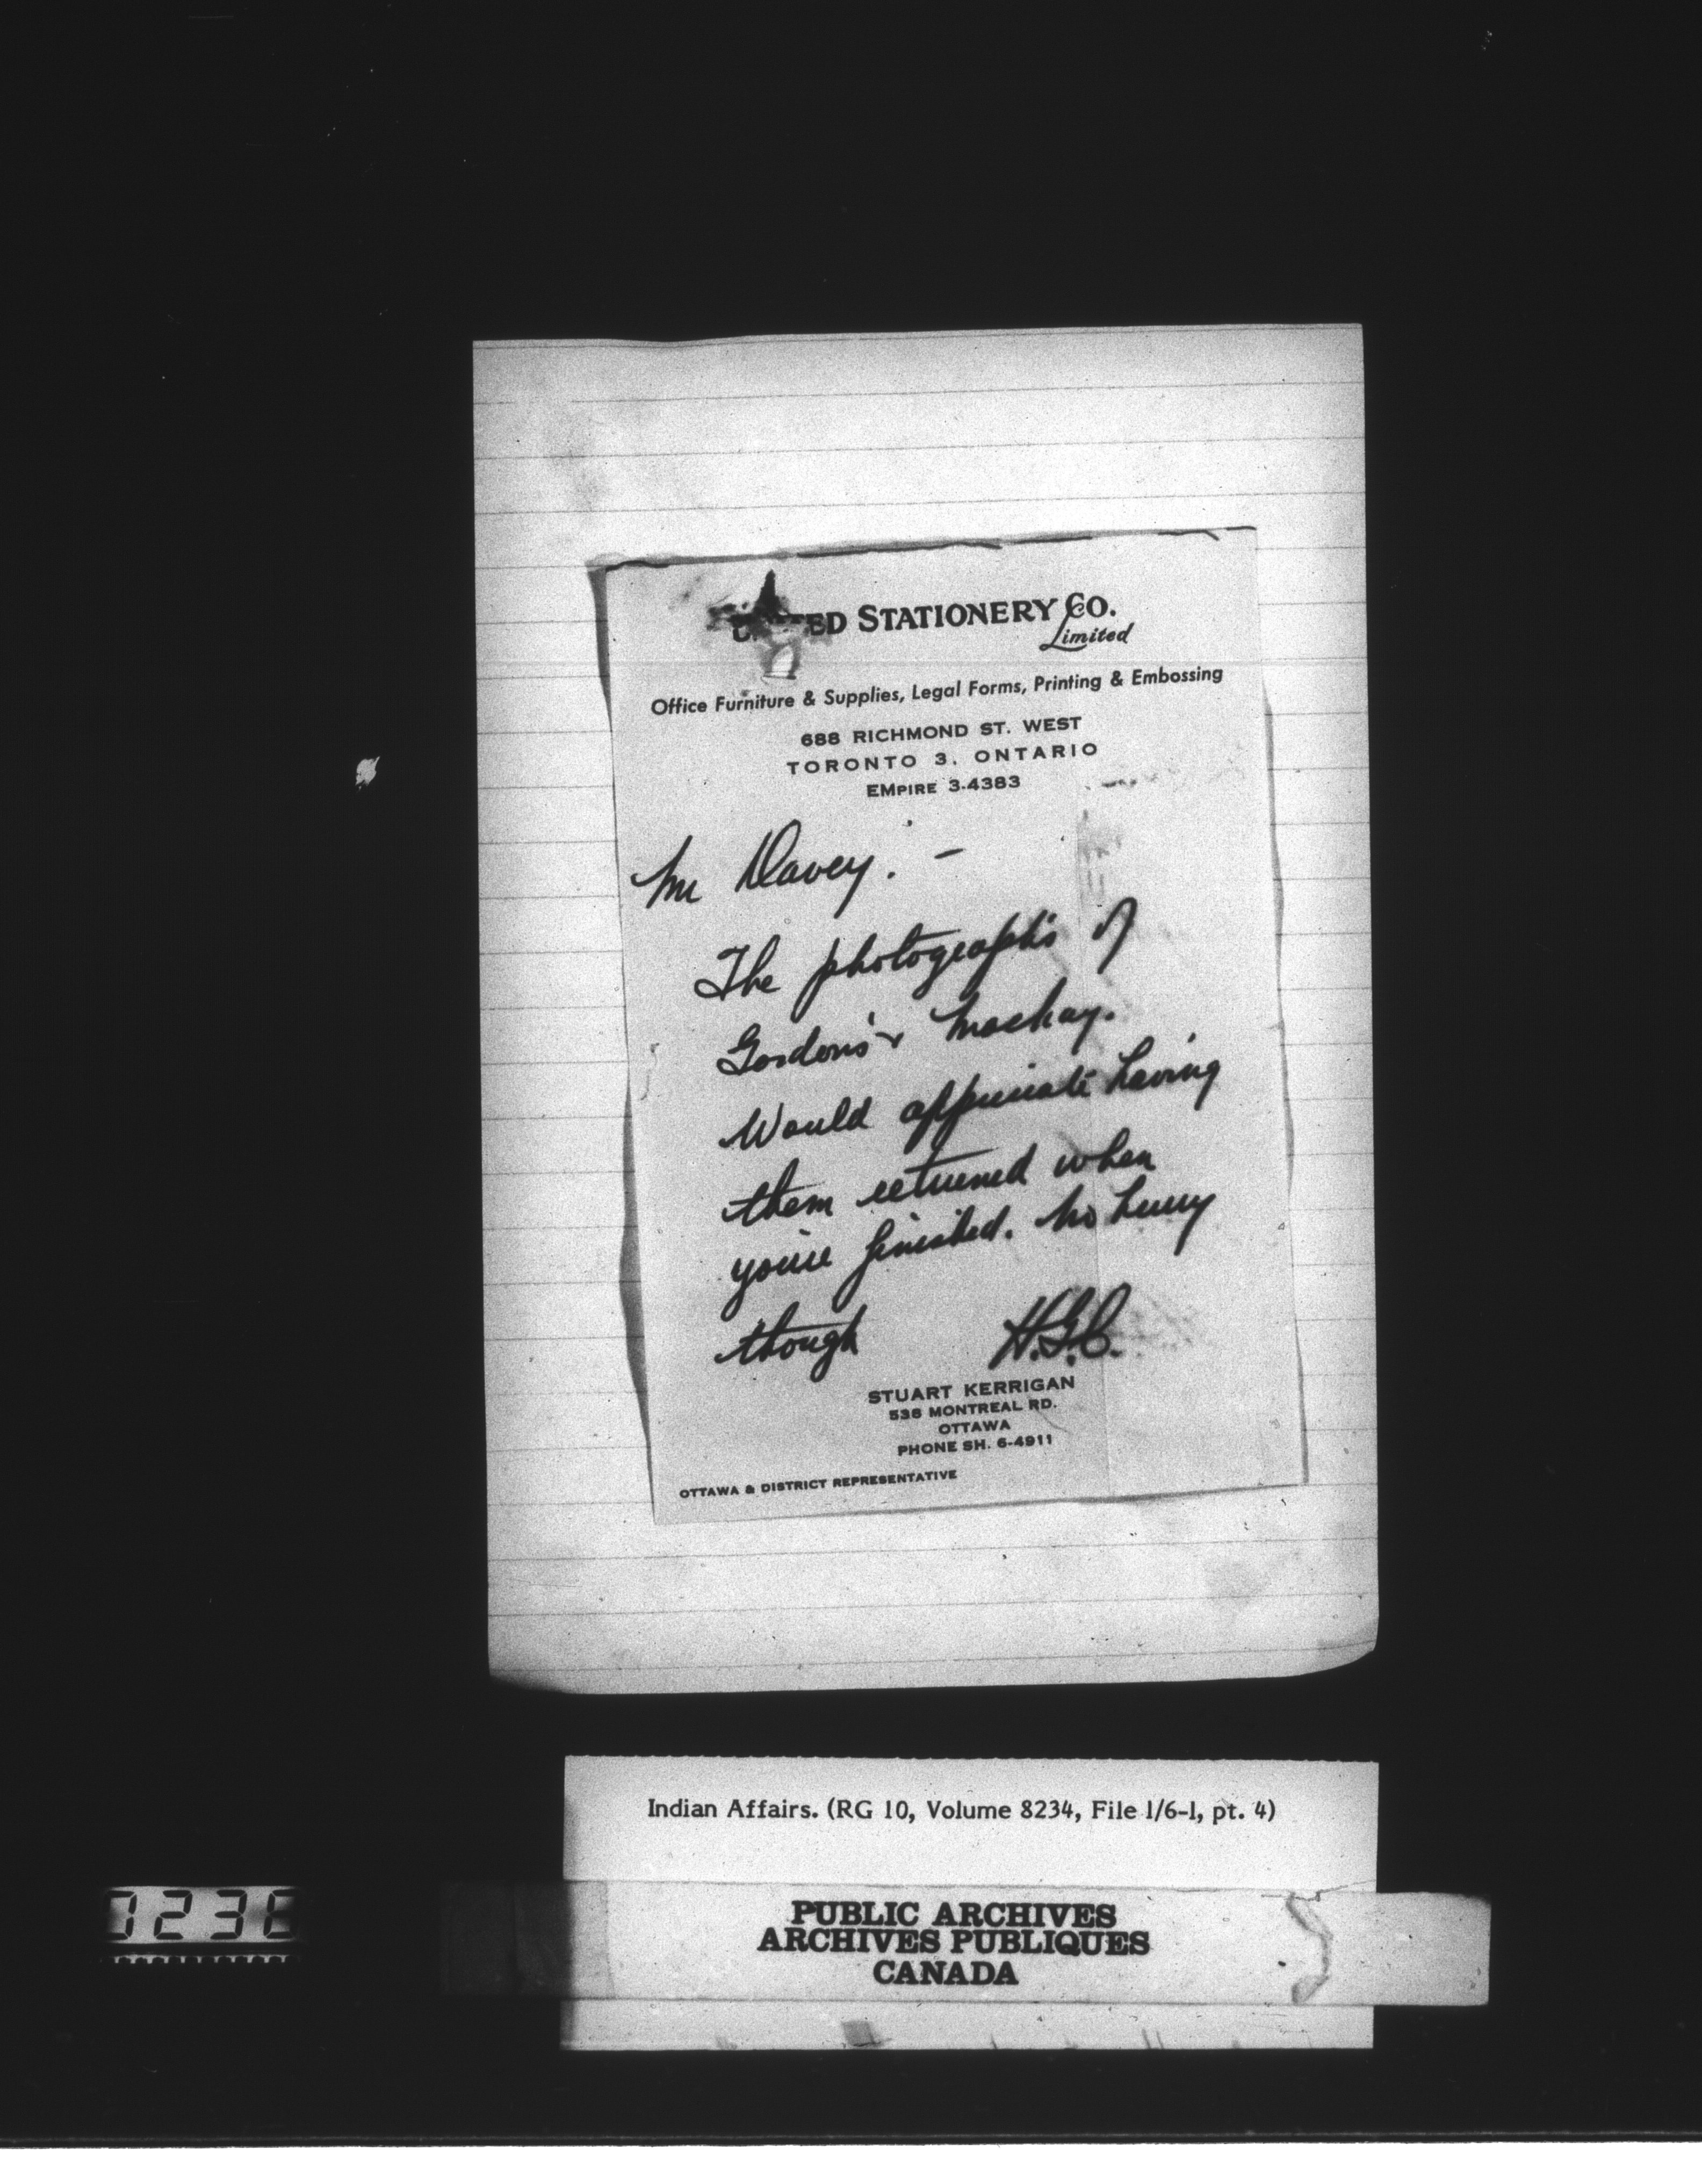 UNITED STATIONERY CO.
Limited
Office Furniture & Supplies, Legal Forms, Printing & Embossing
688 RICHMOND ST. WEST
TORONTO 3, ONTARIO
EMPIRE 3-4383
Mr Davey. -
The photographs of
Gordon's & Mackay.
Would appreciate having
them returned when
you're finished. No hurry
though H.G.C.
STUART KERRIGAN
538 MONTREAL RD.
OTTAWA
PHONE SH. 6-4911
OTTAWA & DISTRICT REPRESENTATIVE
Indian Affairs. (RG 10, Volume 8234, File 1/6-1, pt. 4)
PUBLIC ARCHIVES
ARCHIVES PUBLIQUES
CANADA